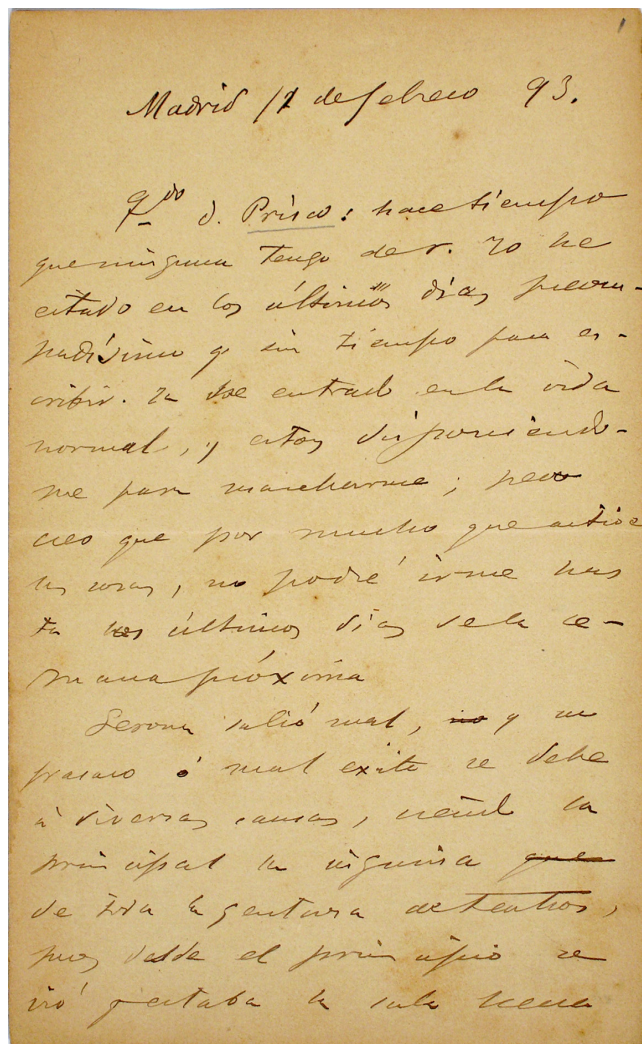 1
Madrid 12 de febrero 93.
Qdo D. Prisco: hace tiempo
que ninguna tengo de v. Yo he
estado en los últimos días preocu-
padísimo y sin tiempo para es-
cribir. Ya he entrado en la vida
normal, y estoy disponiendo-
me para marcharme; pero
creo que por mucho que active
las cosas, no podré irme has
ta los últimos días de la se-
mana próxima
Gerona salió mal, no y su
fracaso ó mal exito se debe
á diversas causas, siend la
principal la inquina que
de toda la gentuza de teatros,
pues desde el principio se
vió q estaba la sala llena